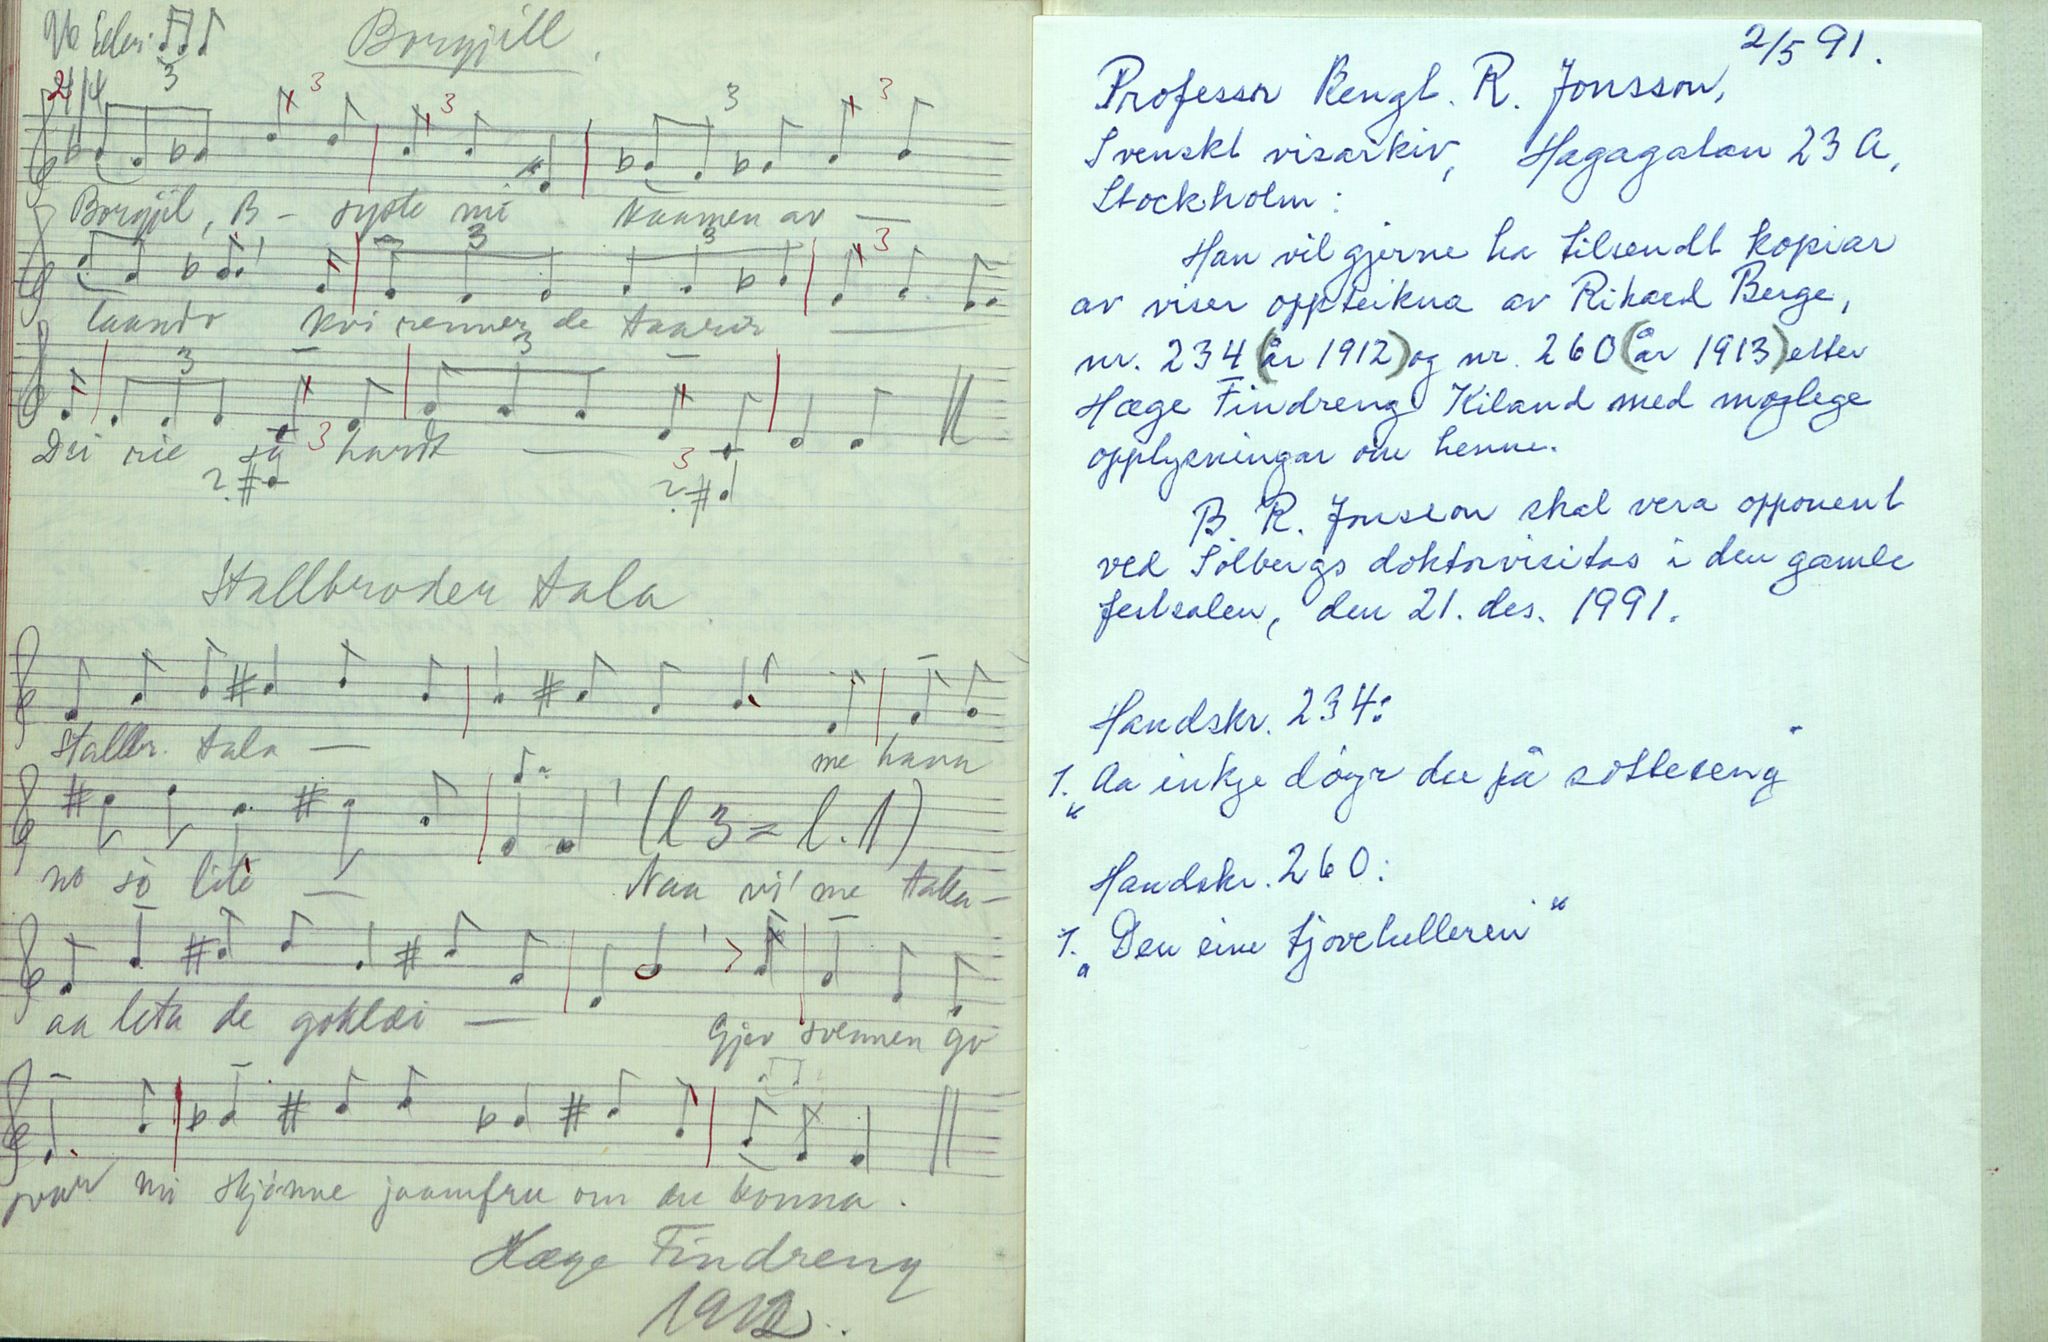 Borgjill
2/4
3 3 3 3 3
Borgjil, B – syste mi Naamen av —
3 3 3
laando kvi renner de taarir —
3 3
Dei rie så 3 hardt — 3
? ?
Stallbroder tala
Stallbr. tala — me hava
(l 3 = l. 1)
no so lite — Naa vi' me taka –
aa leta de goklæi — Gjev svennen go
svar mi skjønne jaamfru om du konna.
Hæge Findreng
1912.
2/5 91.
Professor Bengt. R. Jonsson,
Svenskt visarkiv, Hagagatan 23 A,
Stockholm:
Han vil gjerne ha tilsendt kopiar
av viser oppteikna av Rikard Berge,
nr. 234 (år 1912) og nr. 260 (år 1913) etter
Hæge Findreng Kiland med moglege
opplysningar om henne.
B R. Jonsson skal vera opponent
ved Solbergs doktorvisitas i den gamle
festsalen, den 21. des. 1991.
Handskr. 234:
1. „Aa inkje døyr du på sotteseng"
Handskr. 260:
1. „Den eine tjovehelleren"